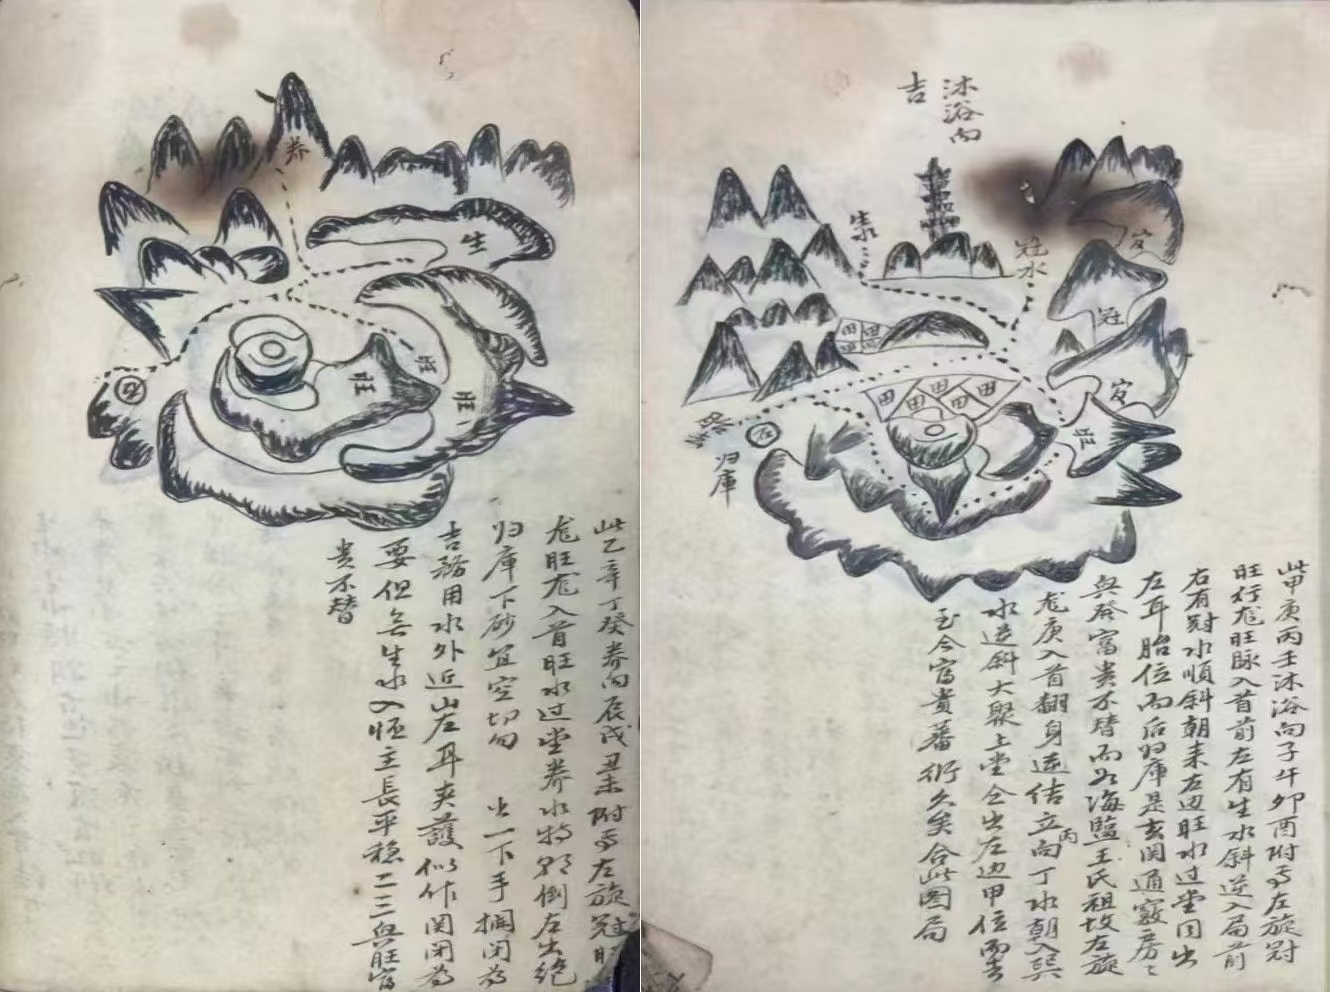 沐浴向
吉
生水
冠水
官
冠
官
旺
田
田
田
田
田
田
田
归庫
此甲庚丙壬沐浴向子午卯酉附焉左旋冠
旺行龙旺脉入首前左有生水斜逆入局前
右有冠水順斜朝来左边旺水过堂同出
左耳胎位而后归庫是玄関通竅房々
與發富贵不替而如海監王氏祖坟左旋
龙庚入首翻身逆结立丙向丁水朝入巽
水逆斜大聚上堂仝出左边甲位而去
至今富貴蕃衍久矣合此图局
养
生
旺
旺
旺
此乙辛丁癸养向辰戌丑未附焉左旋冠旺
龙旺龙入首旺水过堂养水特朝倒左出绝
归庫下砂宜空切勿出一下手掴闭为
吉務用水外近山左耳夹護似作関闭为
要但無生水入怀主長平稳二三與旺富
贵不替